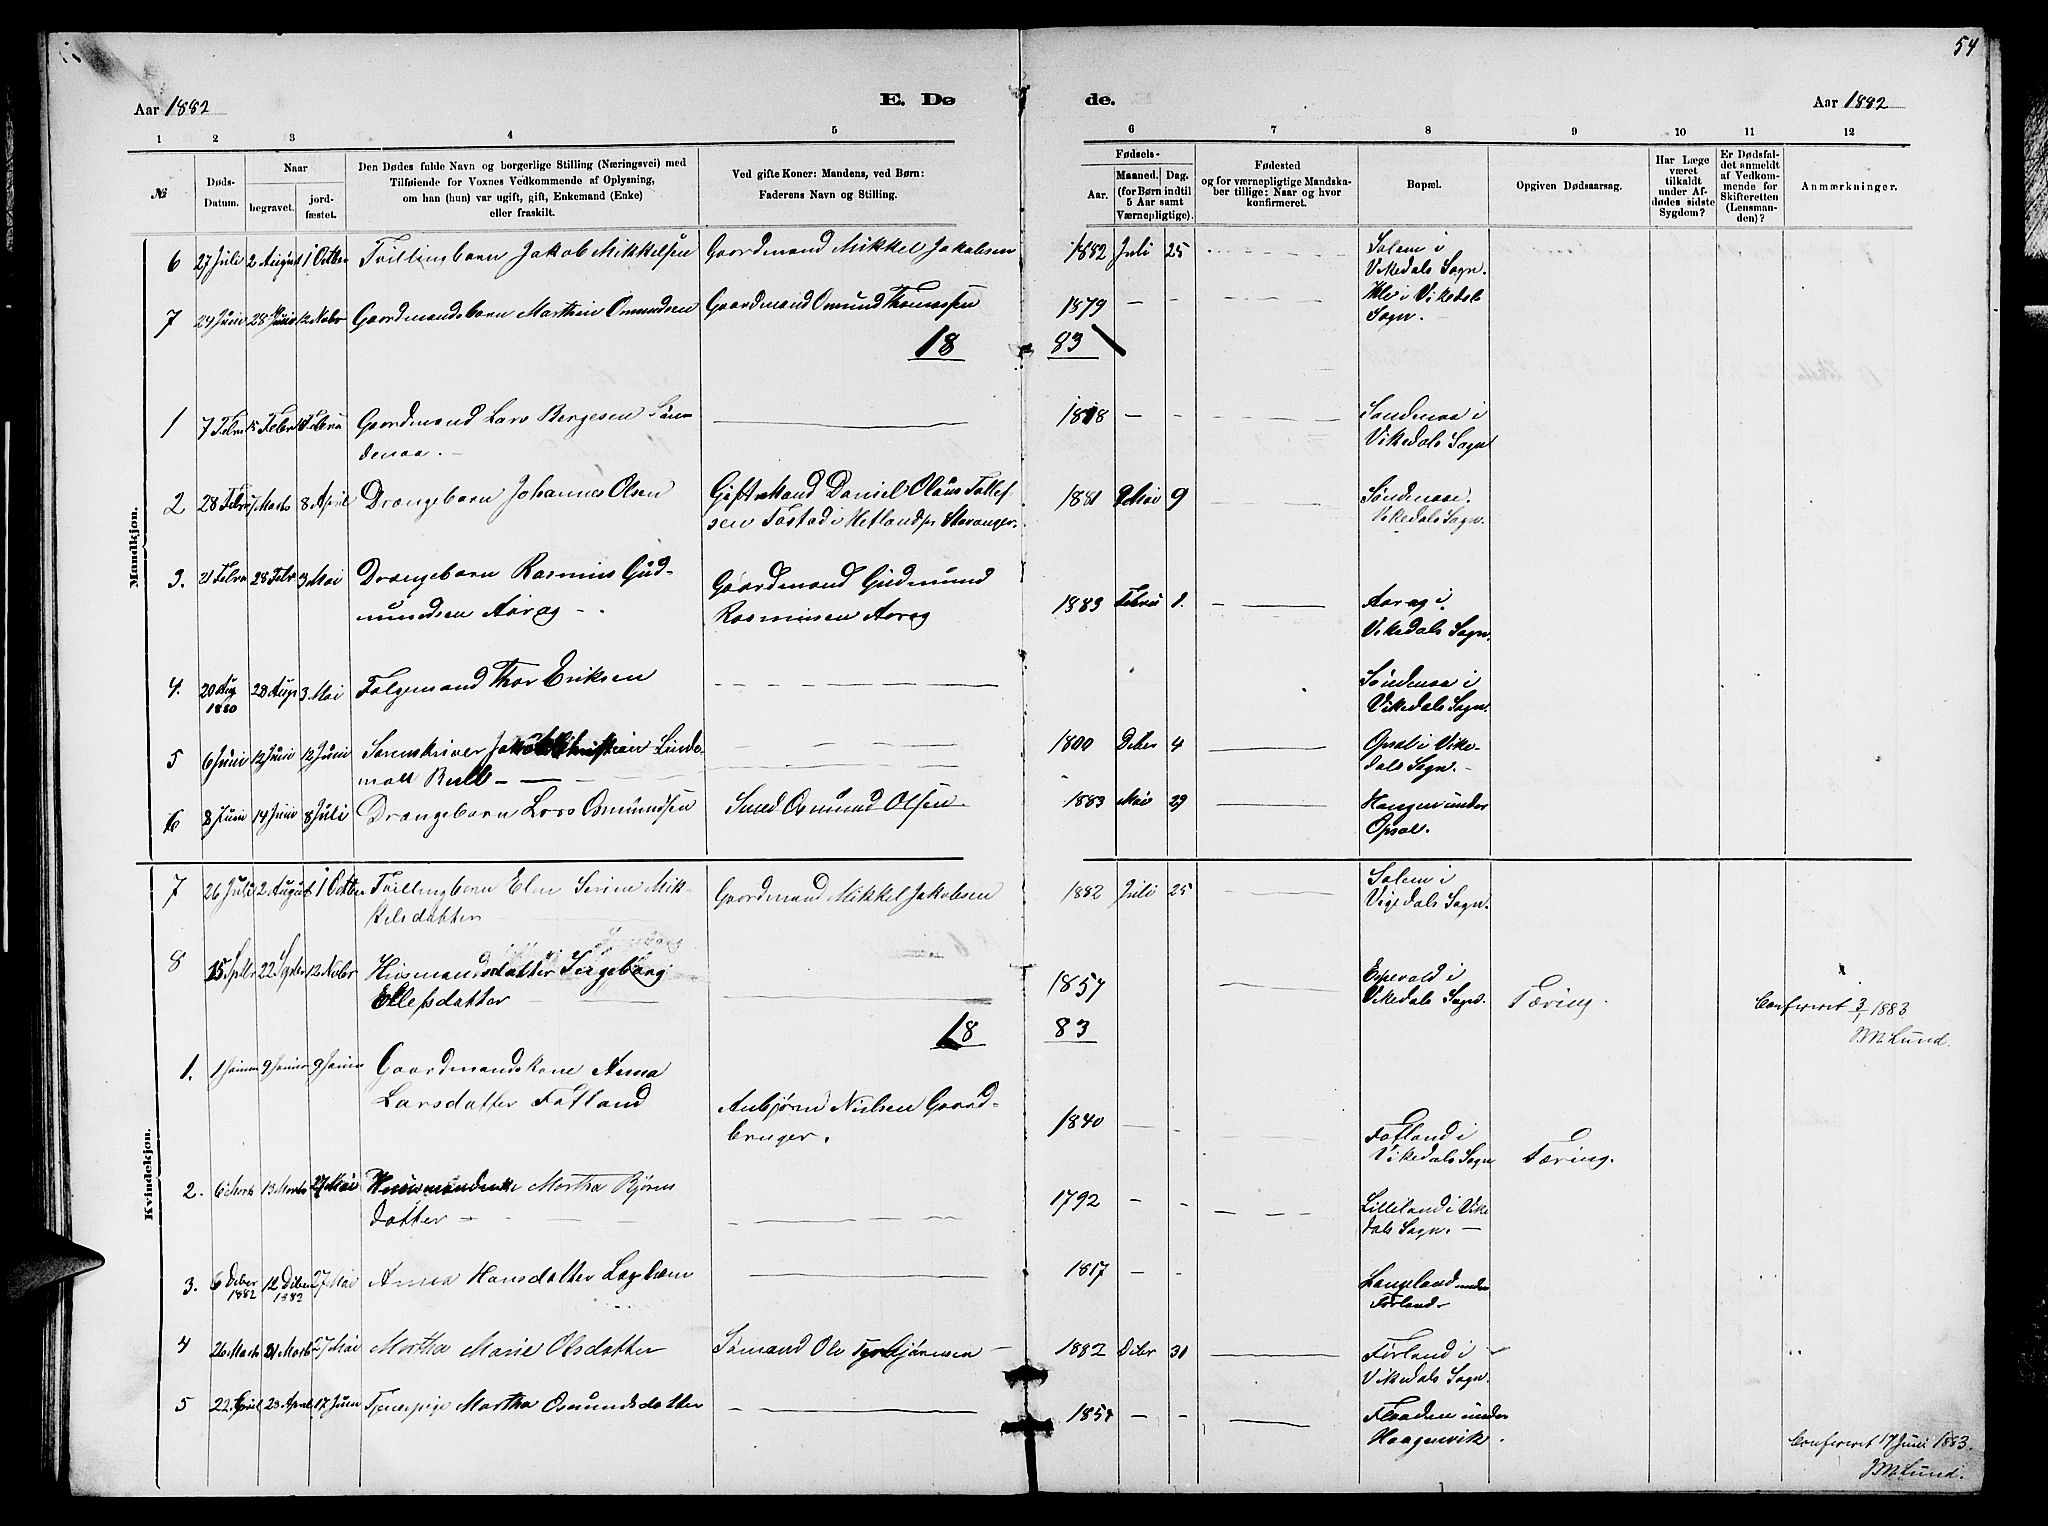 54
Aar 1882
E. Dø
de.
Aar 1882
1 2 3 4 5 6 7 8 9 10 11 12
№
Døds-
Datum.
Naar
begravet.
jord-
fæstet.
Den Dødes fulde Navn og borgerlige Stilling (Næringsvei) med
Tilføiende for Voxnes Vedkommende af Oplysning,
om han (hun) var ugift, gift, Enkemand (Enke)
eller fraskilt.
Ved gifte Koner: Mandens, ved Børn:
Faderens Navn og Stilling.
Fødsels-
Aar.
Maaned.
Dag.
(for Børn indtil
5 Aar samt
Værnepligtige).
Fødested
og for værnepligtige Mandska-
ber tillige: Naar og hvor
konfirmeret.
Bopæl.
Opgiven Dødsaarsag.
Har Læge
været
tilkaldt
under Af-
dødes sidste
Sygdom?
Er Dødsfal-
det anmeldt
af Vedkom-
mende for
Skifteretten
(Lensman-
den)?
Anmærkninger.
Mandkjøn.
6 27 Juli 2 August 1 Octber Tvillingbarn Jakob Mikkelsen Gaardmand Mikkel Jakobsen 1882 Juli 25 Salem i
Vikedals Sogn.
7 24 Juni 28 Juni 12 Nobr Gaardmandsbarn Marthin Osmundsen Gaardmand Osmund Thomassen 1879 — — i Vikedals
Sogn.
18 83
1 7 Febr 15 Febr 18 Febru Gaardmand Lars Bergesen Søn-
denaa. 1818 — — Søndenaa i
Vikedals Sogn
2 28 Febr 7 Marts 8 April Drengebarn Johannes Olsen Gift Mand Daniel Olaus Tollef
sen Tastad i Hetland pr Stavanger. 1881 Mai 9 Søndenaa.
Vikedals Sogn.
3. 21 Febru 28 Febr 3 Mai Drengebarn Rasmus Gud-
mundsen Aarag Gaardmand Gudmund
Rasmusen Aarag 1883 Febru 1. Aarag i
Vikedals Sogn.
4. 20 Aug
1880 28 Aug 3 Mai Følgemand Thor Eriksen Søndenaa i
Vikedals Sogn.
5 6 Juni 12 Juni 12 Juni Sorenskriver Jakob Christian Linde-
mann Bull 1800 Deber 4 Opsal i Vike-
dals Sogn.
6 8 Juni 14 Juni 8 Juli Drengebarn Lars Osmundsen Smed Osmund Olsen 1883 Mai 29 Haugen under
Opsal.
Kvindekjøn.
7 26 Juli 2 August 1 Octber Tvillingbarn Elen Serine Mik-
kelsdatter Gaardmand Mikkel Jakobsen 1882 Juli 25 Salem i
Vigedals Sogn.
8 15 Septbr 22 Septbr 12 Nobr Husmandsdatter Ingeborg
Ellefsdatter 1857 Espevold i
Vikedals Sogn. Tæring. Confereret 3/1 1883
Lund.
18 83
1. 1 Januar 9 Januar 9 Januar Gaardmandskone Anna
Larsdatter Fatland Anbjørn Nielsen Gaard-
bruger. 1840 — — Fatland i
Vikedals Sogn Tæring.
2. 6 Marts 13 Marts 27 Mai Husmandenke Martha Bjørns
datter 1792 — — Lilleland i Vike
dals Sogn.
3. 6 Deber
1882 12 Deber
1882 27 Mai Anna Hansdatter 1817 — — Langeland under
Førland
4 26 Marts 31 Marts 27 Mai Martha Marie Olsdatter Sømand Ole Torbjørnsen 1882 Debr 31 Førland i
Vikedals Sogn.
5 22 April 29 April 17 Juni Tjenestepige Martha Osmundsdatter 1854 — — Flaaden under
Haagenvik.
Confereret 17 Juni 1883.
Lund.